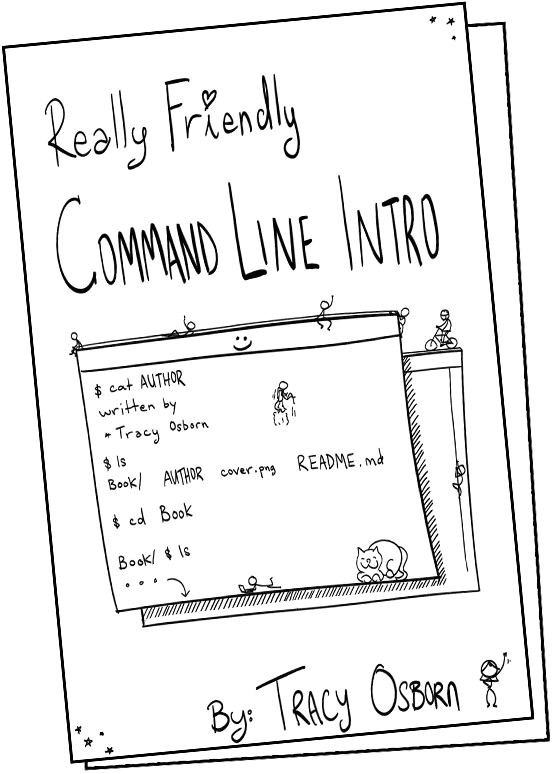 Really Friendly
COMMAND LINE INTRO
$ cat AUTHOR
written by
* Tracy Osborn
$ ls
Book/ AUTHOR cover.png README.md
$ cd Book
Book/ $ ls
...
By: TRACY OSBORN